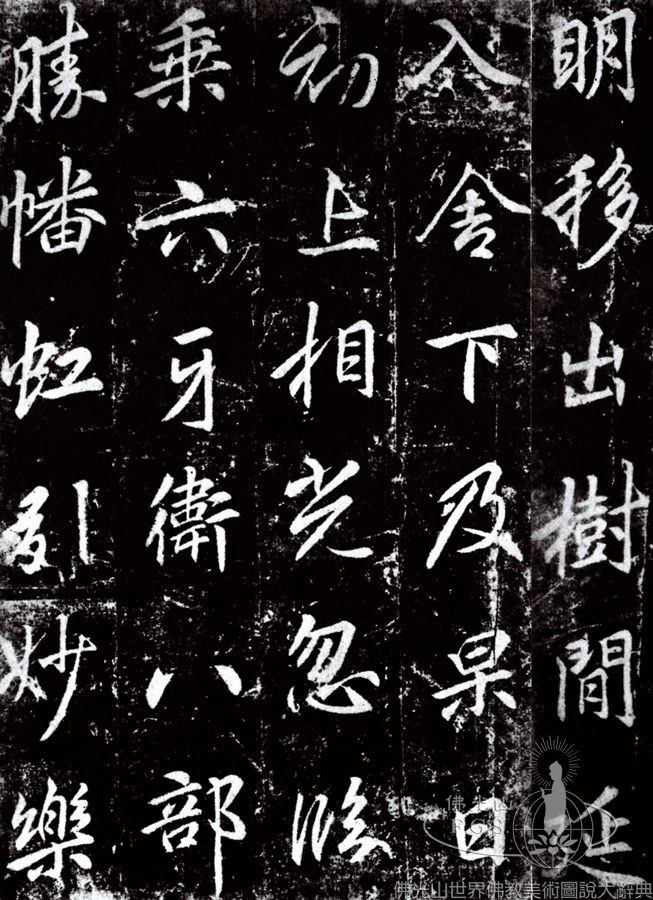 明移出樹間延
入舍下及杲日
初上相光忽臨
乘六牙衛八部
勝幡虹引妙樂
佛光山世界佛教美術圖說大辭典